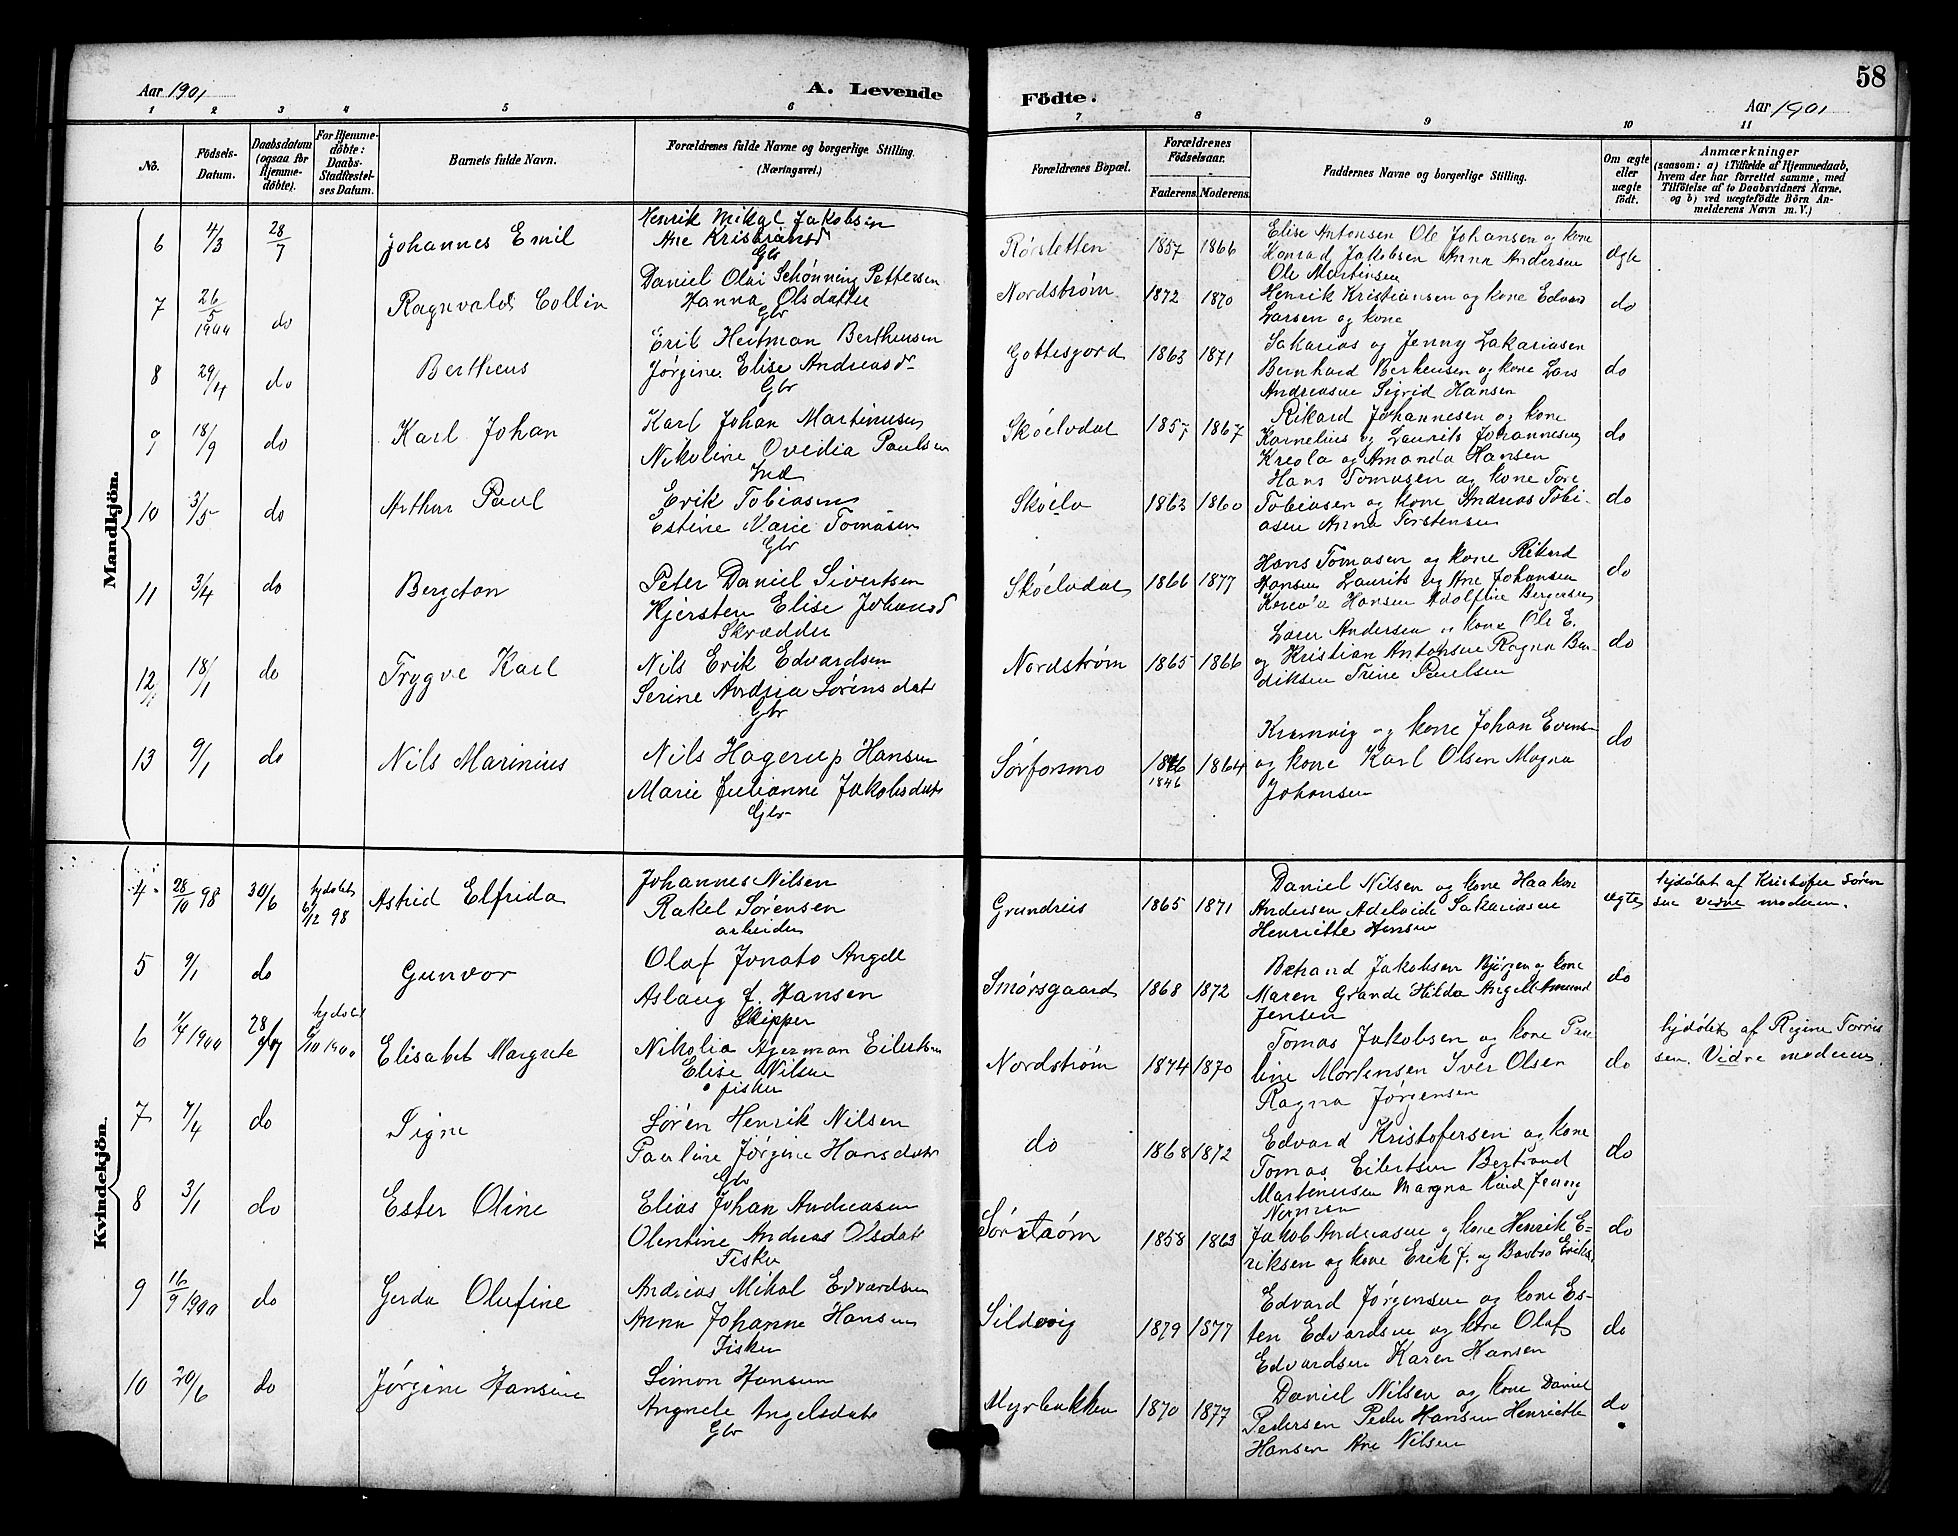 58
Aar 1901 A. Levende Födte. Aar 1901
1 2 3 4 5 6 7 8 9 10 11
No. Födsels-Datum. Daabsdatum (ogsaa for Hjemmedöbte). For Hjemmedöbte: Daabs-Stadfæstelses Datum. Barnets fulde Navn. Forældrenes fulde Navne og borgerlige Stilling. (Næringsvei.) Forældrenes Bopæl. Forældrenes Födselsaar. Faderens Moderens Faddernes Navne og borgerlige Stilling. Om ægte eller uægte födt. Anmærkninger (saasom: a) i Tilfælde af Hjemmedaab, hvem der har forrettet samme, med Tilföielse af to Daabsvidners Navne, og b) ved uægtefödte Börn Anmelderens Navn m. V.)
Mandkjön.
6 4/3 28/7 Johannes Emil Henrik Mikal Jakobsen
Ane Kristiansd
Gbr
Rørstetten 1857 1866 Elise Antonsen Ole Johansen og kone
Konrad Jakobsen Anna Andersen
Ole Martinsen
ægte
7 26/5 1900 do Ragnvald Collin Daniel Olai Schønning Pettersen
Hanna Olsdatter
Gbr
Nordstrøm 1872 1870 Henrik Kristiansen og kone Edvard
Larsen og kone
do
8 29/4 do Bertheus Erik Heitman Bertheusen
Jørgine Elise Andreasdr
Gbr
Gottesjord 1863 1871 Sakarias og Jenny Zakariasen
Bernhard Bertheusen og kone Lars
Andreasen Sigrid Hansen
do
9 18/9 do Karl Johan Karl Johan Martinusen
Nikoline Ovedia Paulsen
Ind
Skoelvdal 1857 1867 Rikard Johannesen og kone
Kornelius og Laurits Johannesen
Kreola og Amanda Hansen
do
10 3/5 do Arthur Paul Erik Tobiasen
Estine Marie Tomasen
Gbr
Skoelv 1863 1860 Hans Tomasen og kone Tore
Tobiasen og kone Andreas Tobi-
asen Anna Torstensen
do
11 3/4 do Bergeton Peter Daniel Sivertsen
Kjersten Elise Johansd
Skrædder
Skoelvdal 1866 1877 Hans Tomasen og kone Rikard
Hansen Laurits og Ane Johansen
Hansen Adolfine Bergersen
do
12 18/1 do Trygve Karl Nils Erik Edvardsen
Serine Andria Sørensdat
Gbr
Nordstrøm 1865 1866 Andersen og kone Ole E.
og Kristian Antonsen Ragna Ben
diksen Trine Paulsen
do
13 9/1 do Nils Marinius Nils Hagerup Hansen
Marie Julianne Jakobsdat
Gbr
Sørforsmo 1846 1864 Kramvig og kone Johan Evens-
og kone Karl Olsen Magna
Johansen
do
Kvindekjön.
4 28/10 98 30/6 hjdøbt 6/12 98 Astrid Elfrida Johannes Nilsen
Rakel Sørensen
arbeider
Grundreis 1865 1871 Daniel Nilsen og kone Haakon
Andersen Adelaide Sakariasen
Henriette Hansen
ægte hjdøbt af Kristofer Søren
sen vidne moderen.
5 9/1 do Gunvor Olaf Jonato Angell
Aslaug f. Hansen
Skipper
Smørsgaard 1868 1872 Jakobsen Bjørgen og kone
Maren Grande Hilda Angell Amund
Jensen
do
6 1/4 1900 28/7 hjdøbt 6/10 1900 Elisabet Margrete Nikolia Agerman Eilertsen
Elise Nilsen
fisker
Nordstrøm 1874 1870 Tomas Jakobsen og kone Pau
line Mortensen Iver Olsen
Ragna Jørgensen
do hjdøbt af Regine Torris
sen. Vidne moderen.
7 7/4 do Signe Søren Henrik Nilsen
Pauline Jørgine Hansdatr
Gbr
do 1868 1872 Edvard Kristofersen og kone
Tomas Eilertsen Bertrand
Martinusen Magna Jenny
do
8 3/1 do Ester Oline Elias Johan Andreasen
Olentine Andreas Olsdatr
Fisker
Sørstrøm 1858 1863 Jakob Andreasen og kone Henrik E-
riksen og kone Erik J. og Barbro Eriks.
do
9 16/9 1900 do Gerda Olufine Andreas Mikal Edvardsen
Anna Johanne Hansen
Fisker
Sildvig 1879 1877 Edvard Jørgensen og kone Es-
ten Edvardsen og kone Olaf
Edvardsen Karen Hansen
do
10 20/6 do Jørgine Hansine Simon Hansen
Angnete Angelsdatr
Gbr
Myrbakken 1870 1877 Daniel Nilsen og kone Daniel
Pedersen Peder Hansen Henriette
Hansen Ane Nilsen
do